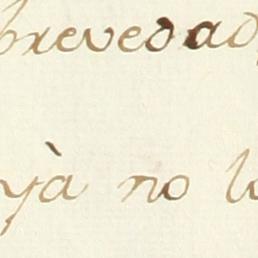 brevedad
yà no lo